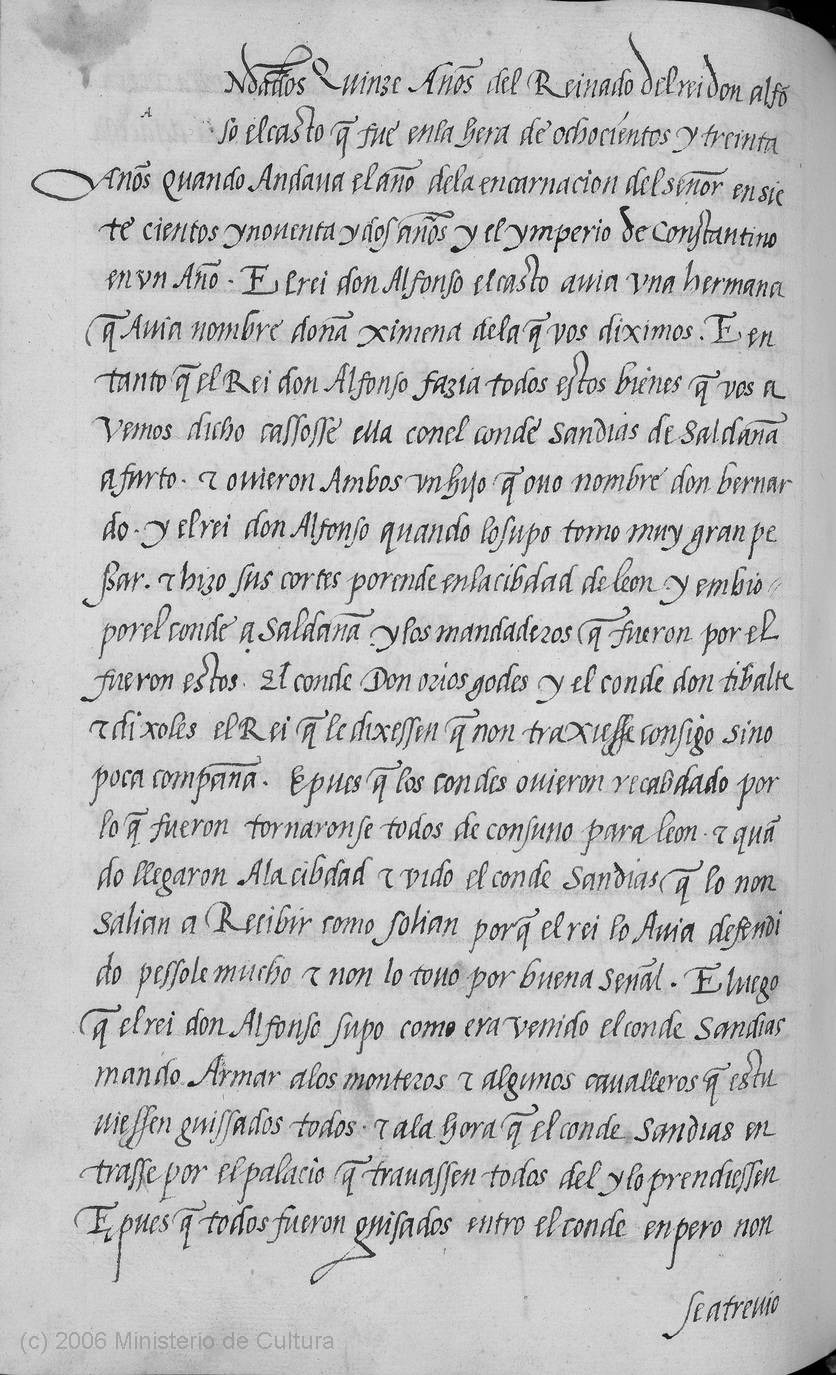 A
Ndados Quinze Años del Reinado del rei don alfõ
so el casto q̃ fue en la hera de ochocientos y treinta
Años Quando Andaua el año dela encarnacion del señor en sie
te cientos y nouenta y dos años y el ymperio de Constantino
en vn Año. El rei don Alfonso el casto auia vna hermana
q̃ Auia nombre doña ximena dela q̃ vos diximos. E en
tanto q̃ el Rei don Alfonso fazia todos estos bienes q̃ vos a
vemos dicho cassosse ella con el conde Sandias de Saldaña
a furto. & ouieron Ambos vn hijo q̃ ouo nombre don bernar
do. y el rei don Alfonso quando lo supo tomo muy gran pe
ssar. & hizo sus cortes porende en la cibdad de leon. y embio
por el conde a Saldaña y los mandaderos q̃ fueron por el
fueron estos. El conde Don orios godes y el conde don tibalte
& dixoles el Rei q̃ le dixessen q̃ non traxiesse consigo sino
poca compaña. E pues q̃ los condes ouieron recabdado por
lo q̃ fueron tornaronse todos de consuno para leon. & quã
do llegaron A la cibdad & vido el conde Sandias q̃ lo non
salian a Recibir como solian porq̃ el rei lo Auia defendi
do pessole mucho & non lo touo por buena señal. E luego
q̃ el rei don Alfonso supo como era venido el conde Sandias
mando Armar a los monteros & algunos caualleros q̃ estu
uiessen guissados todos. & a la hora q̃ el conde Sandias en
trasse por el palacio q̃ trauassen todos del y lo prendiessen
E pues q̃ todos fueron guisados entro el conde enpero non
se atreuio
(c) 2006 Ministerio de Cultura